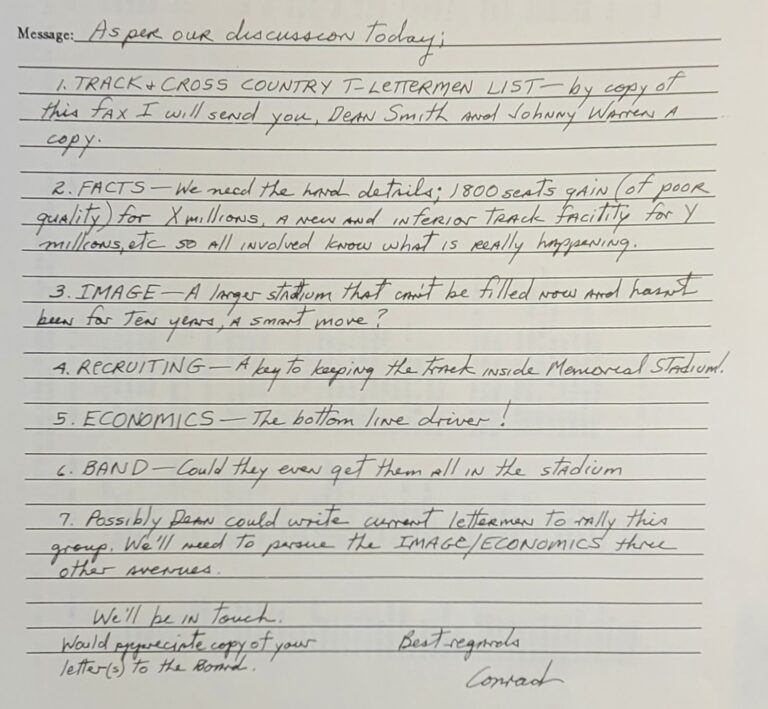 Message: As per our discussion today;
1. TRACK & CROSS COUNTRY T-LETTERMEN LIST — by copy of
this fax I will send you, Dean Smith and Johnny Warren a
copy.
2. FACTS — We need the hard details; 1800 seats gain (of poor
quality) for X millions, a new and inferior track facitity for Y
millions, etc so all involved know what is really happening.
3. IMAGE — A larger stadium that can't be filled now and hasn't
been for ten years, a smart move?
4. RECRUITING — A key to keeping the track inside Memorial Stadium!
5. ECONOMICS — The bottom line driver!
6. BAND — Could they even get them all in the stadium
7. Possibly Dean could write current lettermen to rally this
group. We'll need to persue the IMAGE/ECONOMICS three
other avenues.
We'll be in touch.
Would appreciate copy of your
letter(s) to the Board.
Best regards
Conrad